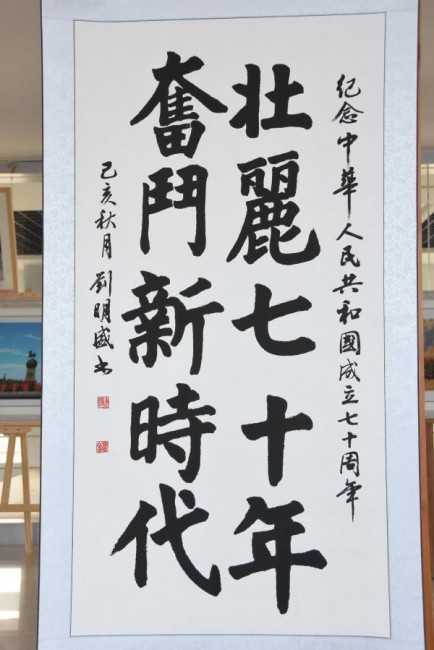 紀念中華人民共和國成立七十周年
壯麗七十年
奮鬥新時代
己亥秋月劉明盛书